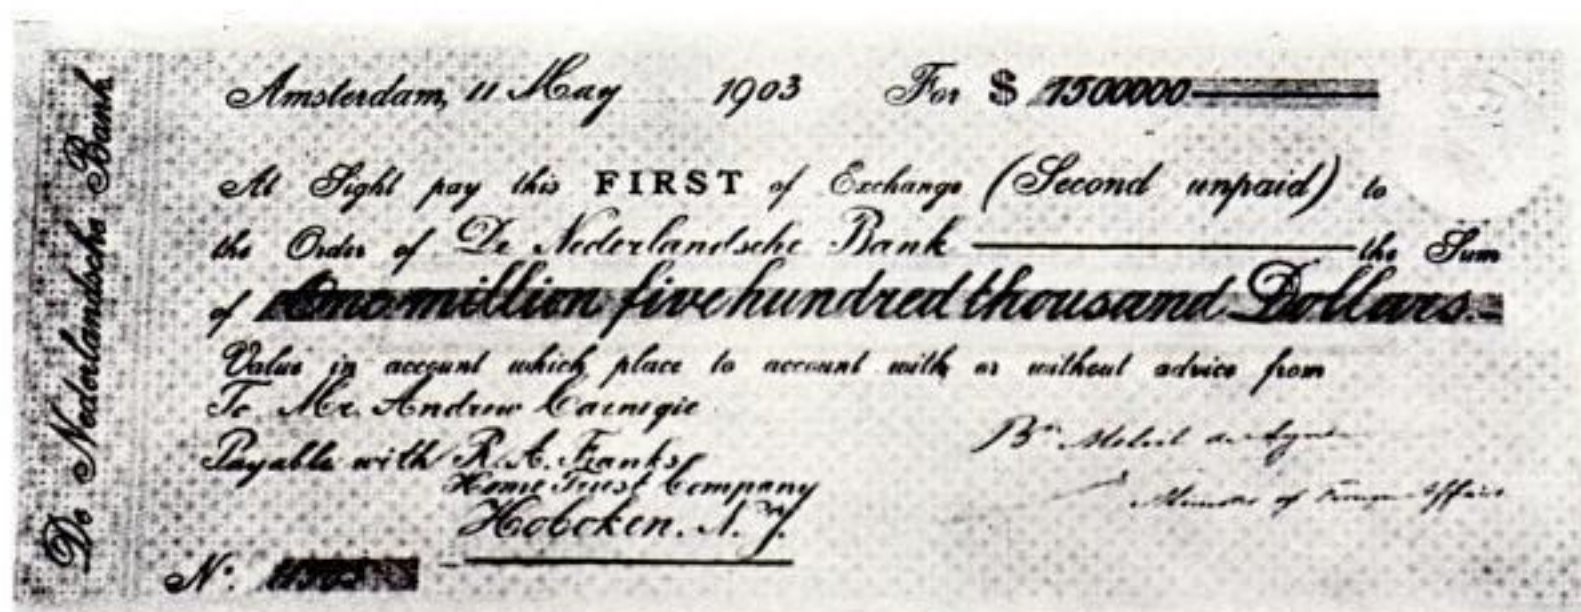 De Nederlandsche Bank
Amsterdam, 11 May 1903 For $ 1500000
At Sight pay this FIRST of Exchange (Second unpaid) to
the Order of De Nederlandsche Bank the Sum
of One million five hundred thousand Dollars.
Value in account which place to account with or without advice from
To Mr. Andrew Carnegie
Payable with R. A. Franks
Home Trust Company
Hoboken. N. J.
Bn Melvil
Minister of Foreign Affairs
No.